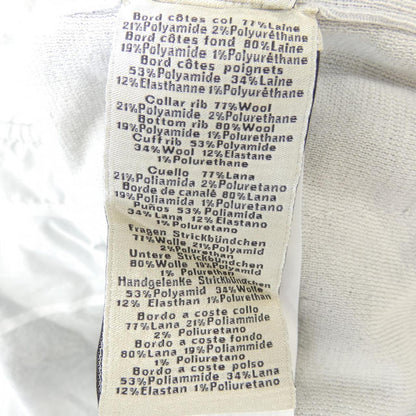 Bord côtes col 77%Laine
21%Polyamide 2%Polyuréthane
Bord côtes fond 80%Laine
19%Polyamide 1%Polyuréthane
Bord côtes poignets
53%Polyamide 34%Laine
12%Elasthanne 1%Polyuréthane
Collar rib 77%Wool
21%Polyamide 2%Polyurethane
Bottom rib 80%Wool
19%Polyamide 1%Polyurethane
Cuff rib 53%Polyamide
34%Wool 12%Elastane
1%Polyurethane
Cuello 77%Lana
21%Poliamida 2%Poliuretano
Borde de canalé 80%Lana
19%Poliamida 1%Poliuretano
Puños 53% Poliamida
34% Lana 12% Elastano
1%Poliuretano
Kragen Strickbündchen
77%Wolle 21%Polyamid
2%Polyurethan
Untere Strickbündchen
80%Wolle 19%Polyamid
1% Polyurethan
Handgelenke Strickbündchen
53%Polyamid 34%Wolle
12% Elasthan 1%Polyurethan
Bordo a coste collo
77%Lana 21%Poliammide
2% Poliuretano
Bordo a coste fondo
80%Lana 19%Poliammide
1%Poliuretano
Bordo a coste polso
53%Poliammide 34%Lana
12%Elastan 1%Poliuretano